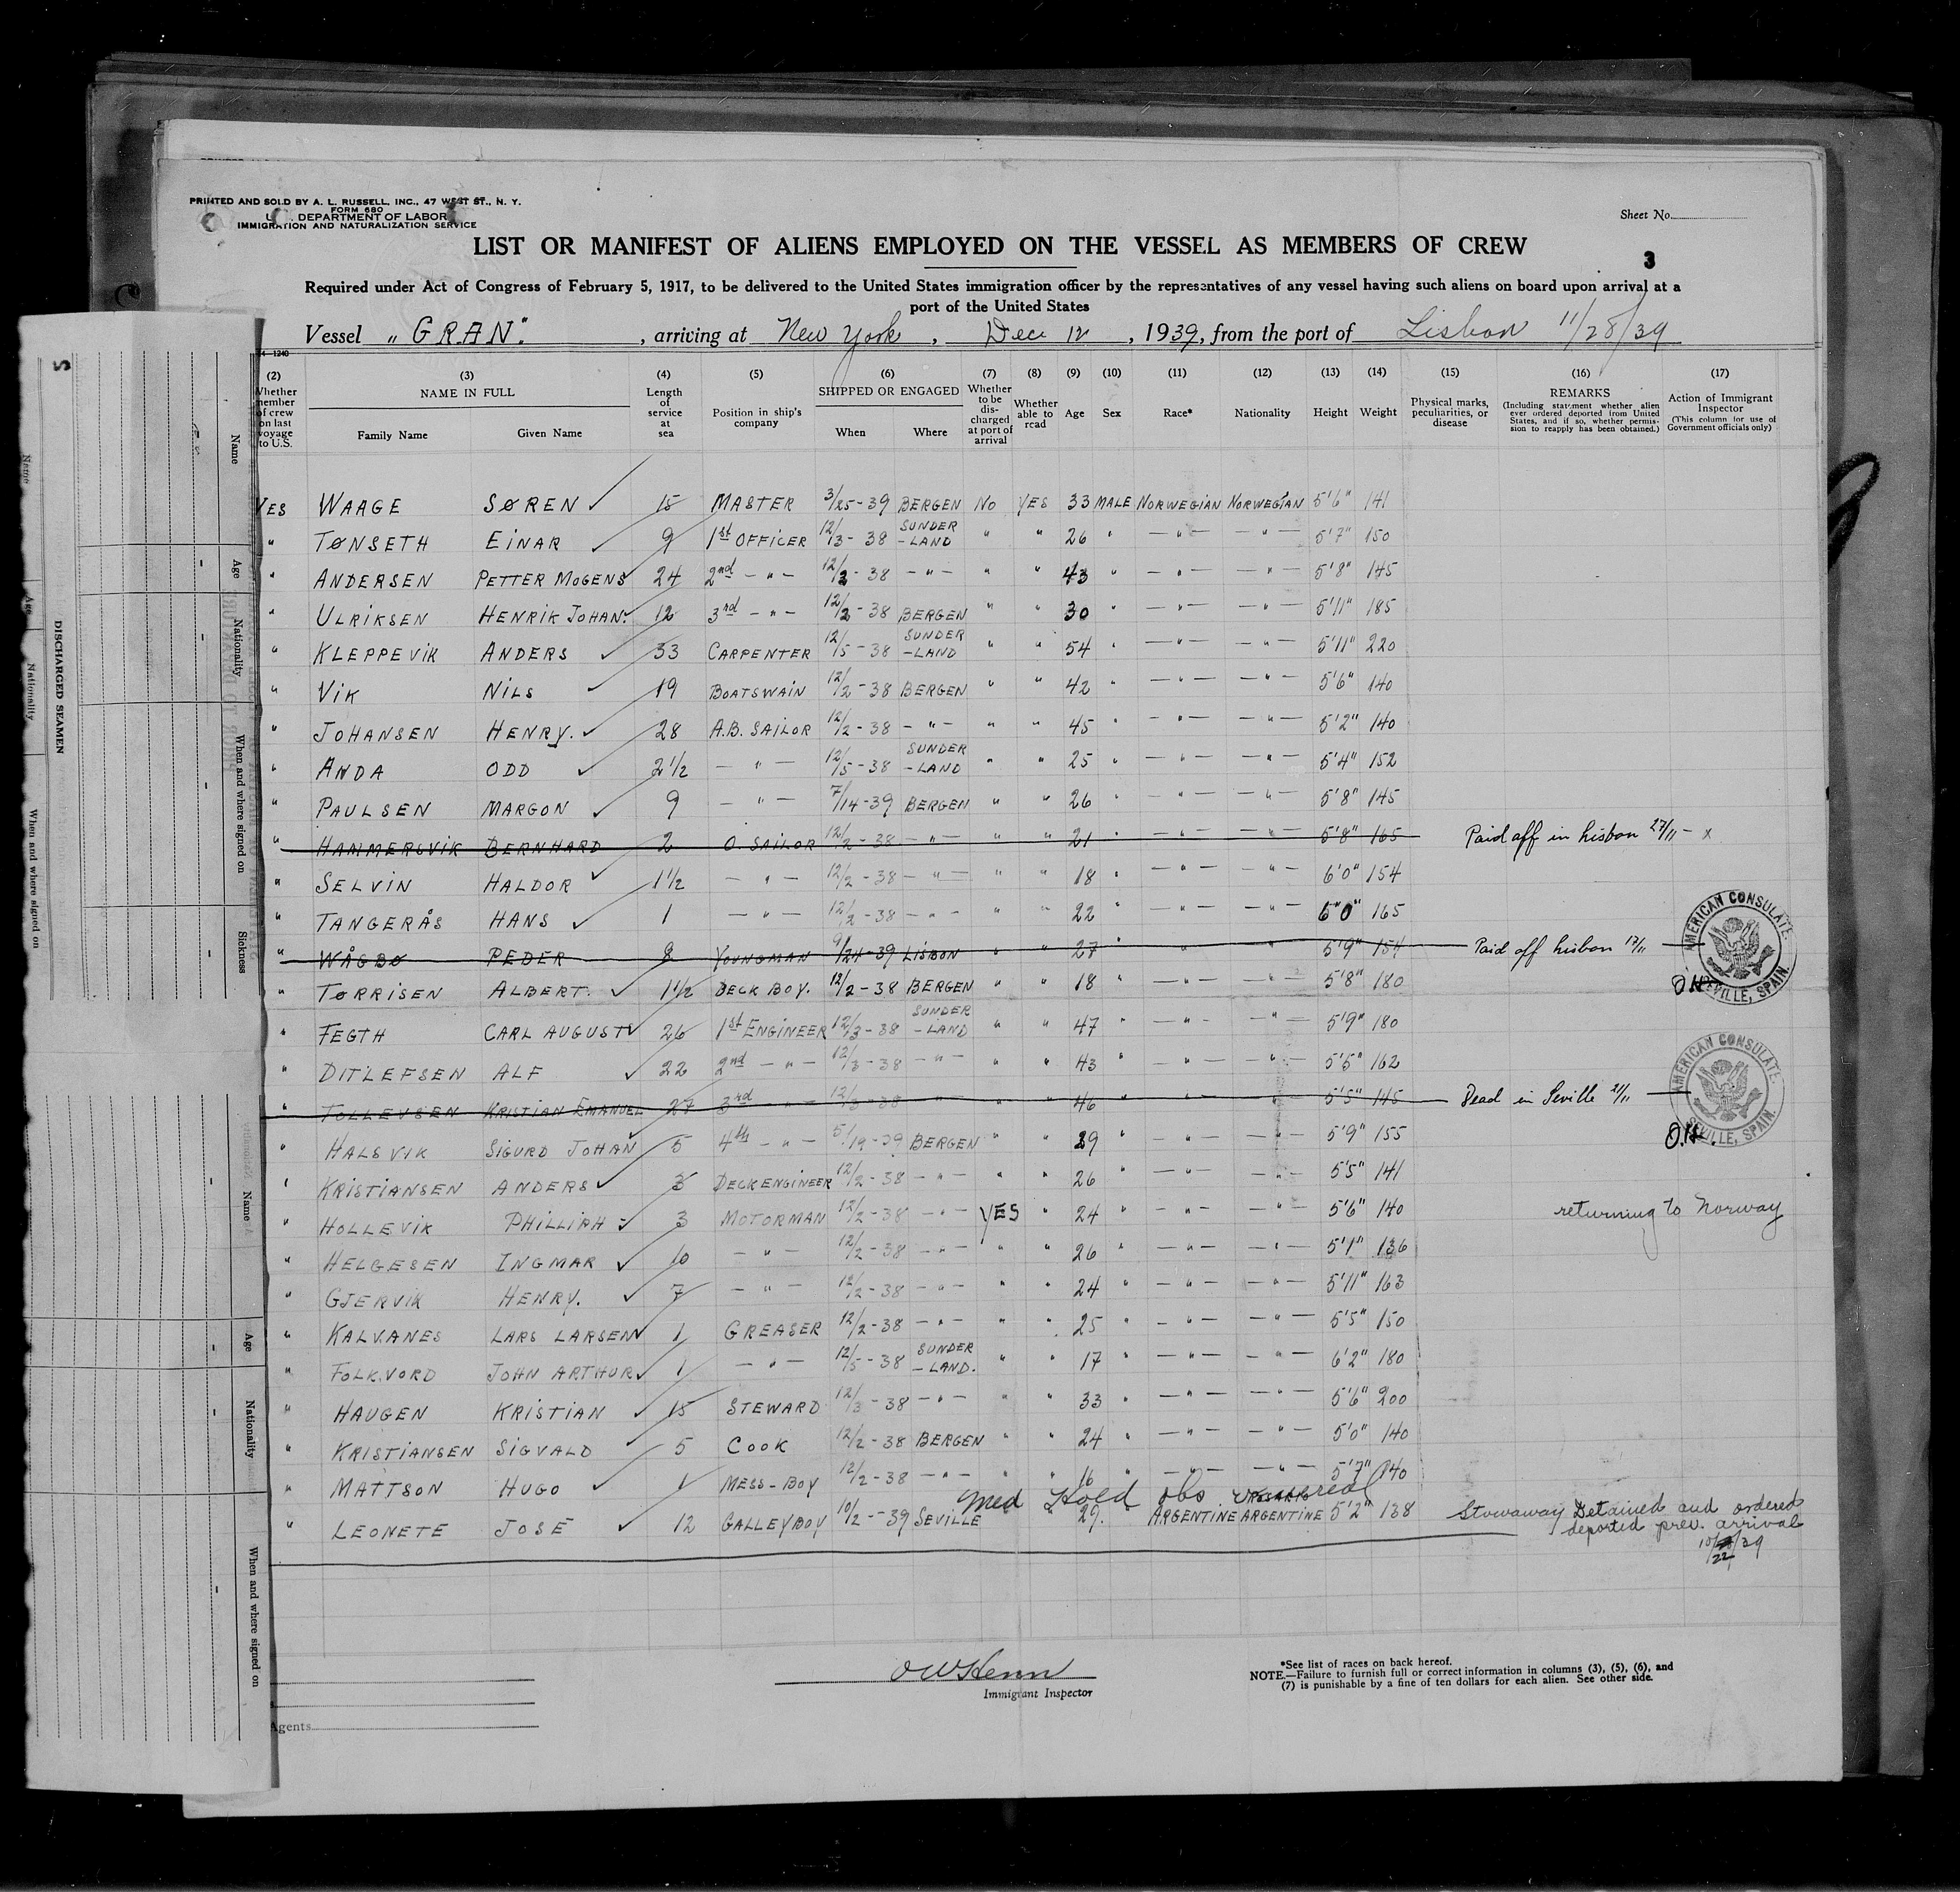 PRINTED AND SOLD BY A. L. RUSSELL, INC., 47 WEST ST., N. Y.
FORM 680
DEPARTMENT OF LABOR
IMMIGRATION AND NATURALIZATION SERVICE
Sheet No.
LIST OR MANIFEST OF ALIENS EMPLOYED ON THE VESSEL AS MEMBERS OF CREW
3
Required under Act of Congress of February 5, 1917, to be delivered to the United States immigration officer by the representatives of any vessel having such aliens on board upon arrival at a
port of the United States
Vessel "GRAN" , arriving at New York , Dec 12 , 1939, from the port of Lisbon 11/28/39
14-1240
(2) (3) (4) (5) (6) (7) (8) (9) (10) (11) (12) (13) (14) (15) (16) (17)
Whether member of crew on last voyage to U.S. NAME IN FULL Family Name Given Name Length of service at sea Position in ship's company SHIPPED OR ENGAGED When Where Whether to be discharged at port of arrival Whether able to read Age Sex Race* Nationality Height Weight Physical marks, peculiarities, or disease REMARKS (Including statement whether alien ever ordered deported from United States, and if so, whether permission to reapply has been obtained.) Action of Immigrant Inspector (This column for use of Government officials only)
YES WAAGE SØREN ✓ 15 MASTER 3/25-39 BERGEN NO YES 33 MALE NORWEGIAN NORWEGIAN 5'6" 141
" TØNSETH EINAR ✓ 9 1st OFFICER 12/3-38 SUNDER-LAND " " 26 " " " 5'7" 150
" ANDERSEN PETTER MOGENS ✓ 24 2nd " 12/2-38 " " " 43 " " " 5'8" 145
" ULRIKSEN HENRIK JOHAN. ✓ 12 3rd " 12/2-38 BERGEN " " 30 " " " 5'11" 185
" KLEPPEVIK ANDERS ✓ 33 CARPENTER 12/5-38 SUNDER-LAND " " 54 " " " 5'11" 220
" VIK NILS ✓ 19 BOATSWAIN 12/2-38 BERGEN " " 42 " " " 5'6" 140
" JOHANSEN HENRY. ✓ 28 A.B. SAILOR 12/2-38 " " " 45 " " " 5'2" 140
" ANDA ODD ✓ 2 1/2 " 12/5-38 SUNDER-LAND " " 25 " " " 5'4" 152
" PAULSEN MARGON ✓ 9 " 7/14-39 BERGEN " " 26 " " " 5'8" 145
" HAMMERSVIK BERNHARD 2 O. SAILOR 12/2-38 " " " 21 " " " 5'8" 165 Paid off in Lisbon 27/11 - x
" SELVIN HALDOR ✓ 1 1/2 " 12/2-38 " " " 18 " " " 6'0" 154
" TANGERÅS HANS ✓ 1 " 12/2-38 " " " 22 " " " 6'0" 165
" WÅGBØ PEDER 8 YOUNGMAN 9/24-39 LISBON " " 27 " " " 5'9" 154 Paid off Lisbon 17/11
" TØRRISEN ALBERT. ✓ 1 1/2 DECK BOY. 12/2-38 BERGEN " " 18 " " " 5'8" 180
" FEGTH CARL AUGUST ✓ 26 1st ENGINEER 12/3-38 SUNDER-LAND " " 47 " " " 5'9" 180
" DITLEFSEN ALF ✓ 22 2nd " 12/3-38 " " " 43 " " " 5'5" 162
" TOLLEVSEN KRISTIAN EMANUEL 27 3rd " 12/3-38 " " " 46 " " " 5'5" 145 Dead in Seville 21/11
" HALSVIK SIGURD JOHAN ✓ 5 4th " 5/19-39 BERGEN " " 29 " " " 5'9" 155
" KRISTIANSEN ANDERS ✓ 3 DECKENGINEER 12/2-38 " " " 26 " " " 5'5" 141
" HOLLEVIK PHILLIPH ✓ 3 MOTORMAN 12/2-38 " YES " 24 " " " 5'6" 140 returning to Norway
" HELGESEN INGMAR ✓ 10 " 12/2-38 " " " 26 " " " 5'1" 136
" GJERVIK HENRY. ✓ 7 " 12/2-38 " " " 24 " " " 5'11" 163
" KALVANES LARS LARSEN ✓ 1 GREASER 12/2-38 " " " 25 " " " 5'5" 150
" FOLKVORD JOHN ARTHUR ✓ 1 " 12/5-38 SUNDER-LAND. " " 17 " " " 6'2" 180
" HAUGEN KRISTIAN ✓ 15 STEWARD 12/3-38 " " " 33 " " " 5'6" 200
" KRISTIANSEN SIGVALD ✓ 5 COOK 12/2-38 BERGEN " " 24 " " " 5'0" 140
" MATTSON HUGO ✓ 1 MESS-BOY 12/2-38 " " " 16 " " " 5'7" 140
Med Hold obs venereal
" LEONETE JOSÉ ✓ 12 GALLEYBOY 10/2-39 SEVILLE " 29. ARGENTINE ARGENTINE 5'2" 138 Stowaway Detained and ordered
deported prev. arrival
10/22/39
AMERICAN CONSULATE.
SEVILLE, SPAIN.
O.K.
AMERICAN CONSULATE.
SEVILLE, SPAIN.
O.K.
Immigrant Inspector
*See list of races on back hereof.
NOTE.—Failure to furnish full or correct information in columns (3), (5), (6), and
(7) is punishable by a fine of ten dollars for each alien. See other side.
Agents
DISCHARGED SEAMEN
Name
Age
Nationality
When and where signed on
Sickness
Name
Age
Nationality
When and where signed on
Name
Age
Nationality
When and where signed on